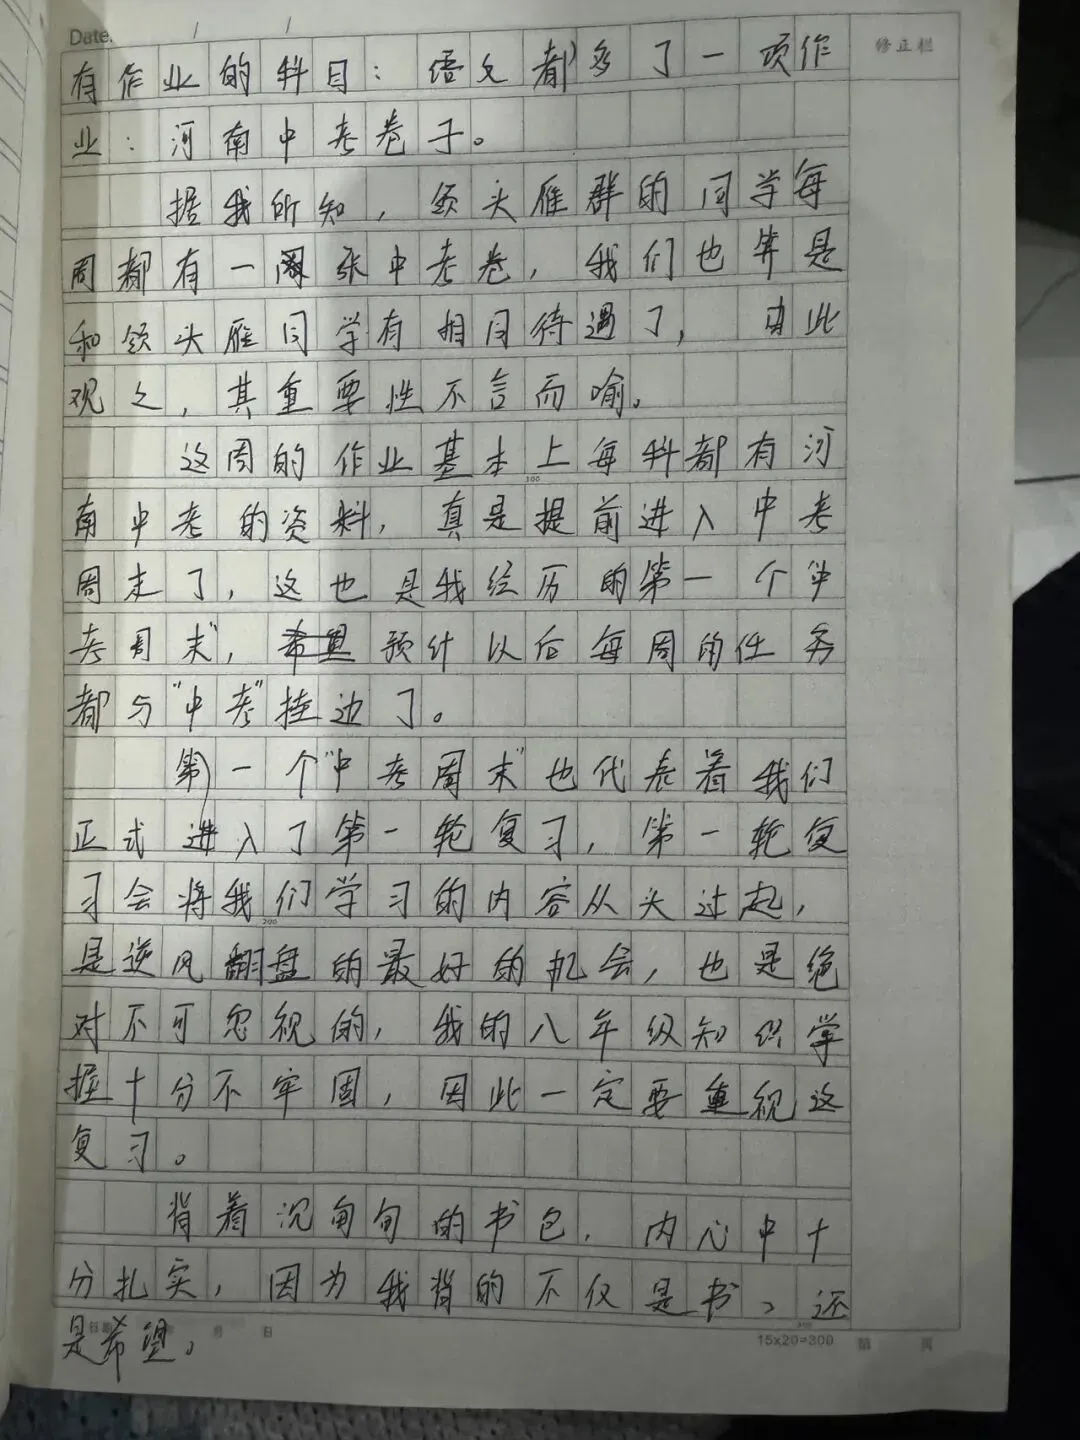 Date: / /
修正栏
有作业的科目：语文都多了一项作
业：河南中考卷子。
据我所知，领头雁群的同学每
周都有一张中考卷，我们也算是
和领头雁同学有相同待遇了，由此
观之，其重要性不言而喻。
这周的作业基本上每科都有河
100
南中考的资料，真是提前进入中考
周末了，这也是我经历的第一个"中
考周末"，预计以后每周的任务
都与"中考"挂边了。
第一个"中考周末"也代表着我们
正式进入了第一轮复习，第一轮复
习会将我们学习的内容从头过起，
200
是逆风翻盘的最好的机会，也是绝
对不可忽视的，我的八年级知识掌
握十分不牢固，因此一定要重视这
复习。
背着沉甸甸的书包，内心中十
分扎实，因为我背的不仅是书、还
300
是希望。
日期 年 月 日
15x20=300 第 页